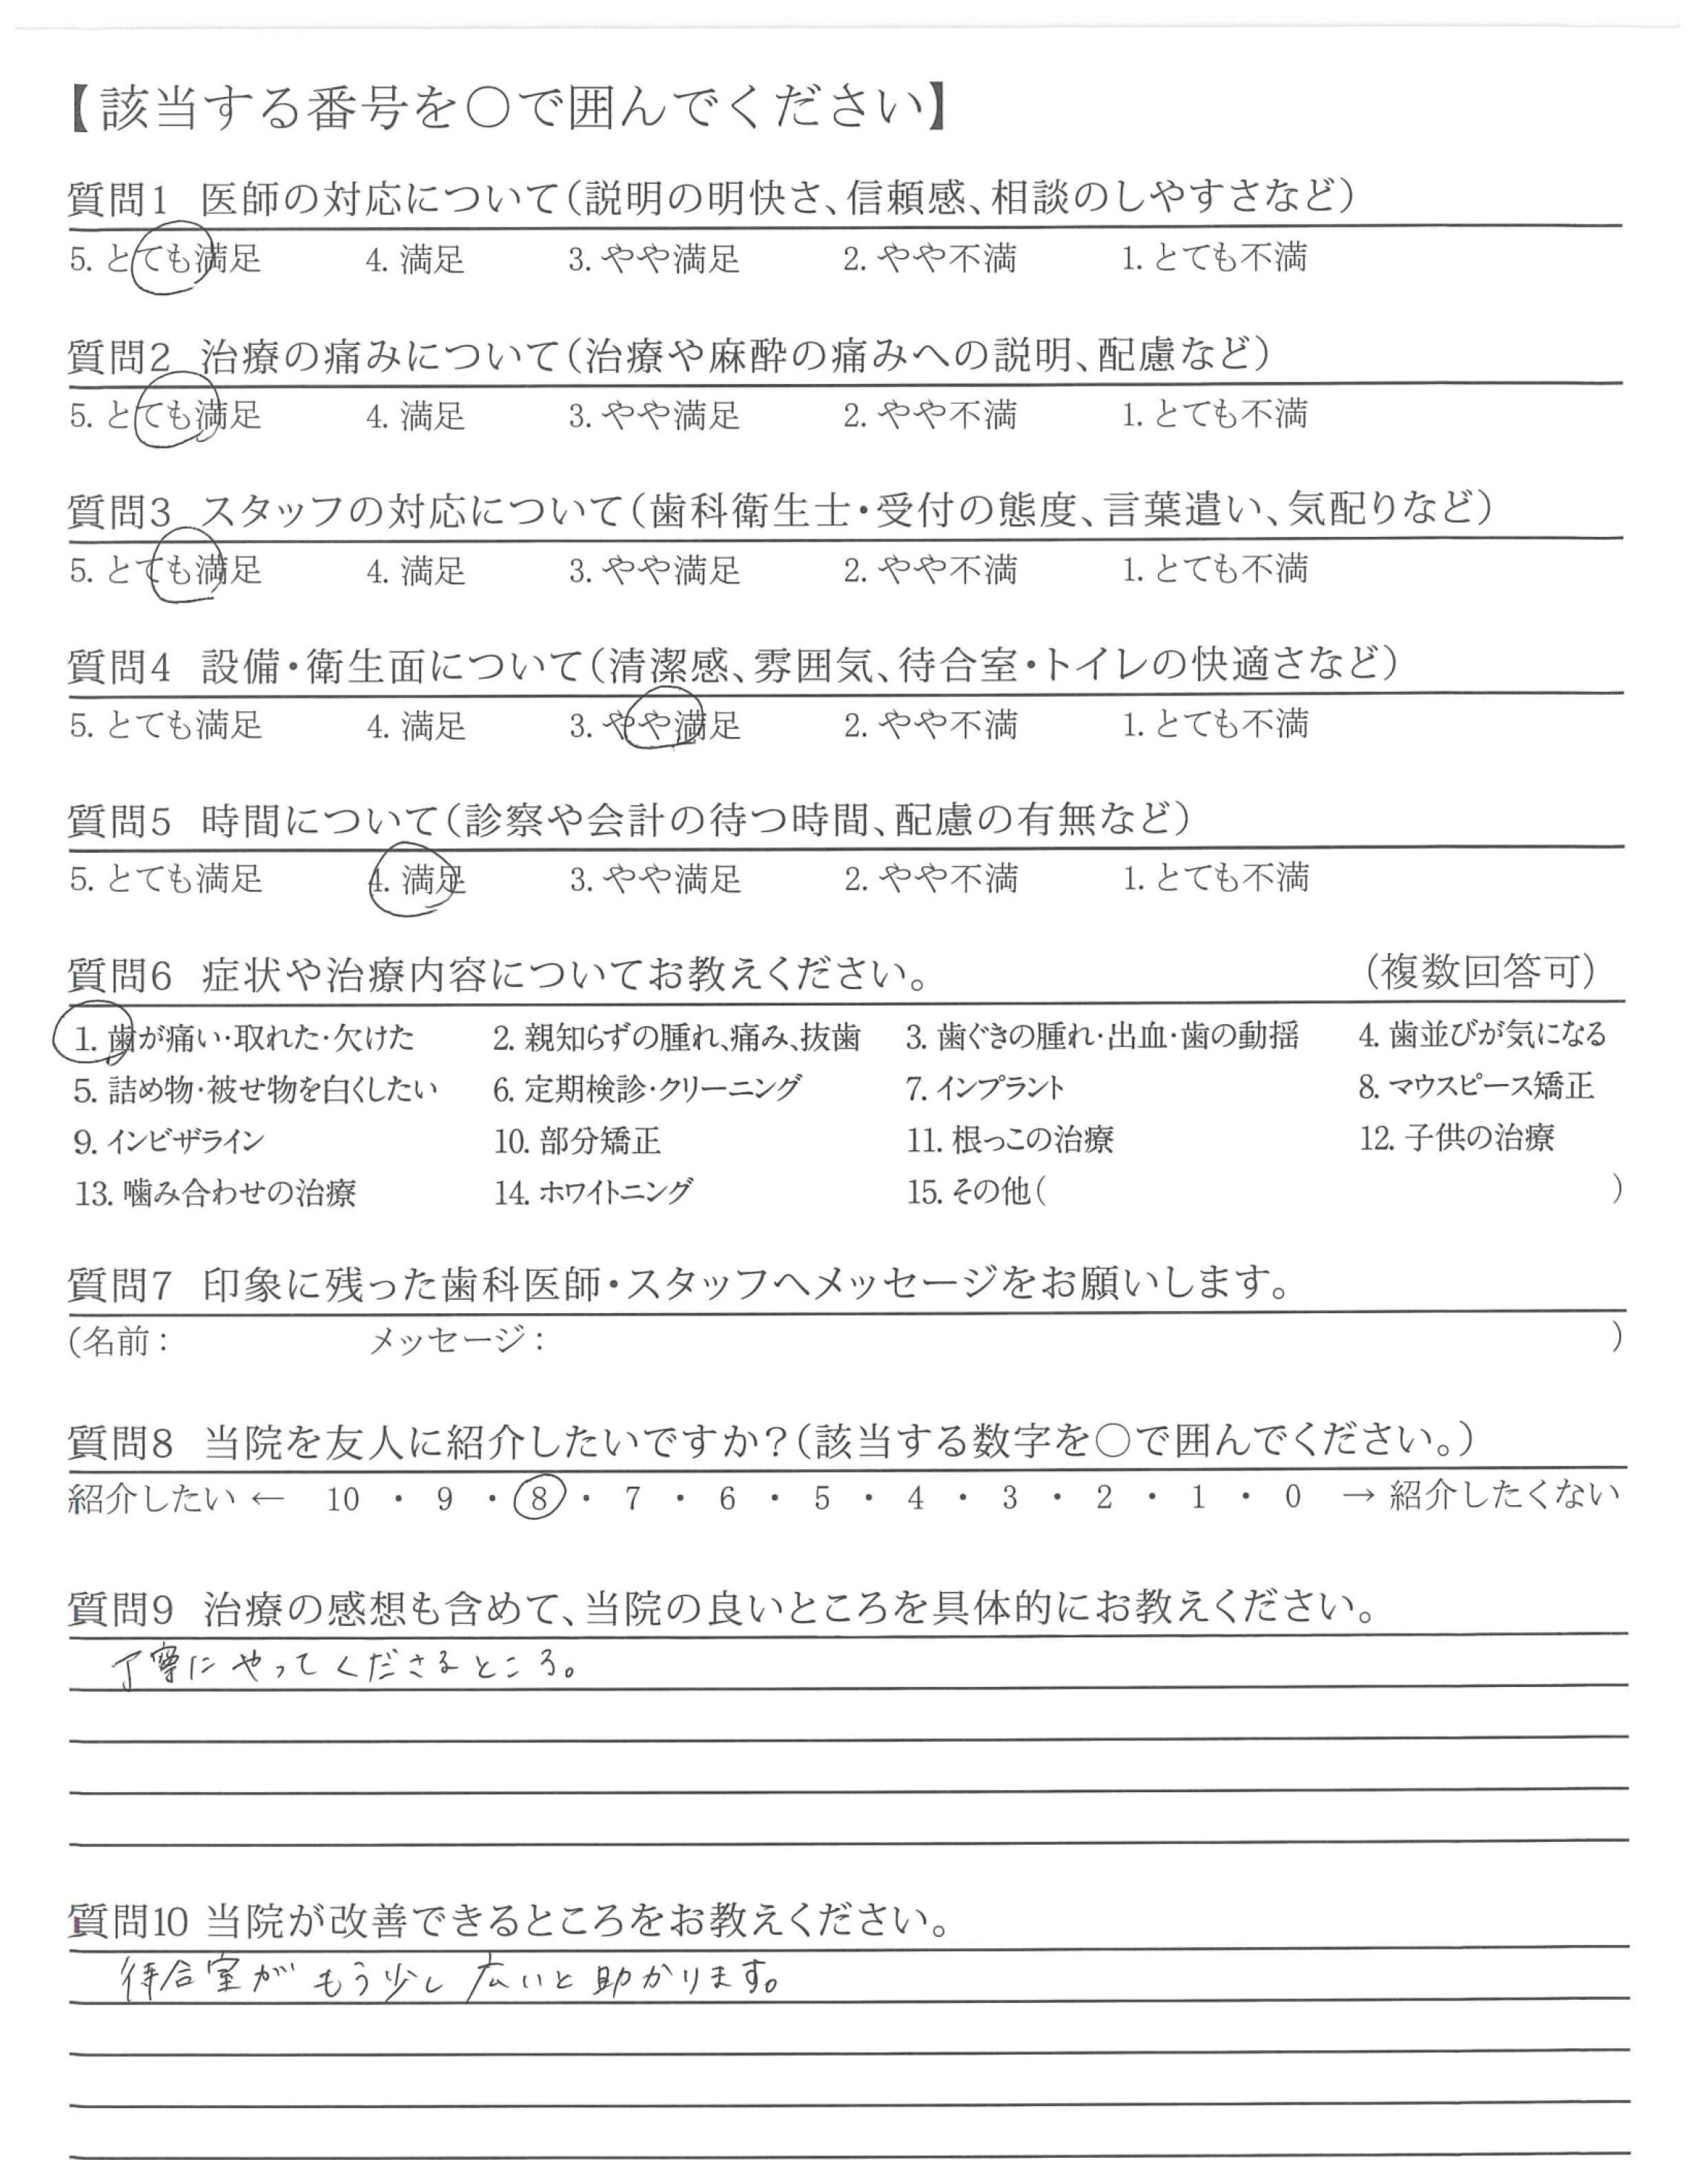 【該当する番号を○で囲んでください】
質問1 医師の対応について(説明の明快さ、信頼感、相談のしやすさなど)
5. とても満足 4. 満足 3. やや満足 2. やや不満 1. とても不満
質問2 治療の痛みについて(治療や麻酔の痛みへの説明、配慮など)
5. とても満足 4. 満足 3. やや満足 2. やや不満 1. とても不満
質問3 スタッフの対応について(歯科衛生士・受付の態度、言葉遣い、気配りなど)
5. とても満足 4. 満足 3. やや満足 2. やや不満 1. とても不満
質問4 設備・衛生面について(清潔感、雰囲気、待合室・トイレの快適さなど)
5. とても満足 4. 満足 3. やや満足 2. やや不満 1. とても不満
質問5 時間について(診察や会計の待つ時間、配慮の有無など)
5. とても満足 4. 満足 3. やや満足 2. やや不満 1. とても不満
質問6 症状や治療内容についてお教えください。 (複数回答可)
1. 歯が痛い・取れた・欠けた 2. 親知らずの腫れ、痛み、抜歯 3. 歯ぐきの腫れ・出血・歯の動揺 4. 歯並びが気になる
5. 詰め物・被せ物を白くしたい 6. 定期検診・クリーニング 7. インプラント 8. マウスピース矯正
9. インビザライン 10. 部分矯正 11. 根っこの治療 12. 子供の治療
13. 噛み合わせの治療 14. ホワイトニング 15. その他( )
質問7 印象に残った歯科医師・スタッフへメッセージをお願いします。
(名前: メッセージ: )
質問8 当院を友人に紹介したいですか?(該当する数字を○で囲んでください。)
紹介したい ← 10 ・ 9 ・ 8 ・ 7 ・ 6 ・ 5 ・ 4 ・ 3 ・ 2 ・ 1 ・ 0 → 紹介したくない
質問9 治療の感想も含めて、当院の良いところを具体的にお教えください。
丁寧にやってくださるところ。
質問10 当院が改善できるところをお教えください。
待合室がもう少し広いと助かります。